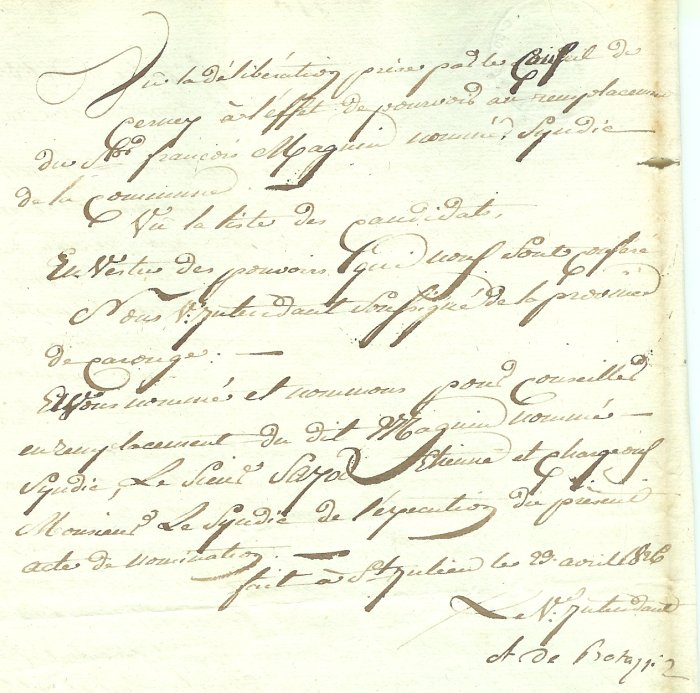 Vu la délibération prise par le Conseil de
Cernex à l'effet de pourvoir au remplacement
du Sr françois Magnin nommé Syndic
de la Commune.
Vu la liste des Candidats,
En Vertu des pouvoirs qui nous sont Conféré
Nous V. Intendant soussigné de la province
de Carouge. —
Avons nommé et nommons pour Conseiller
en remplacement du dit Magnin nommé —
Syndic, Le Sieur Etienne et Chargeons
Monsieur Le Syndic de l'exécution du présent
acte de nomination. —
fait à St Julien le 29 avril 1826
Le V. Intendant
de